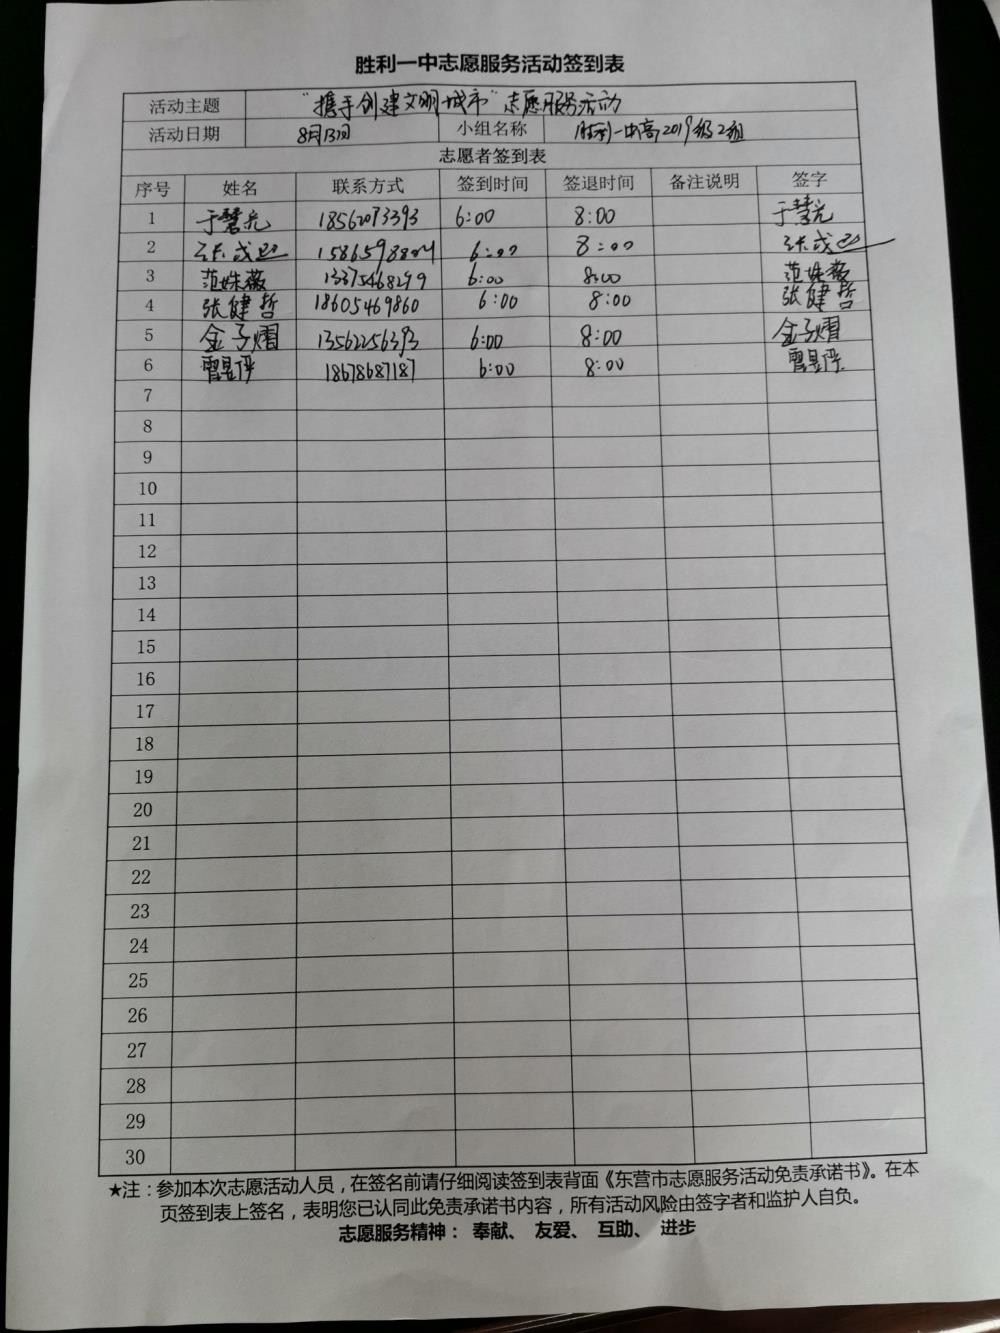 胜利一中志愿服务活动签到表
活动主题 "携手创建文明城市"志愿服务活动
活动日期 8月13日 小组名称 胜利一中高2019级2组
志愿者签到表
序号 姓名 联系方式 签到时间 签退时间 备注说明 签字
1 于慧允 18562073393 6:00 8:00 于慧允
2 张成 6:00 8:00 张成
3 范姝薇 13375468299 6:00 8:00 范姝薇
4 张健哲 18605469860 6:00 8:00 张健哲
5 金子熠 13562256393 6:00 8:00 金子熠
6 18678687187 6:00 8:00
7
8
9
10
11
12
13
14
15
16
17
18
19
20
21
22
23
24
25
26
27
28
29
30
★注：参加本次志愿活动人员，在签名前请仔细阅读签到表背面《东营市志愿服务活动免责承诺书》。在本
页签到表上签名，表明您已认同此免责承诺书内容，所有活动风险由签字者和监护人自负。
志愿服务精神： 奉献、 友爱、 互助、 进步